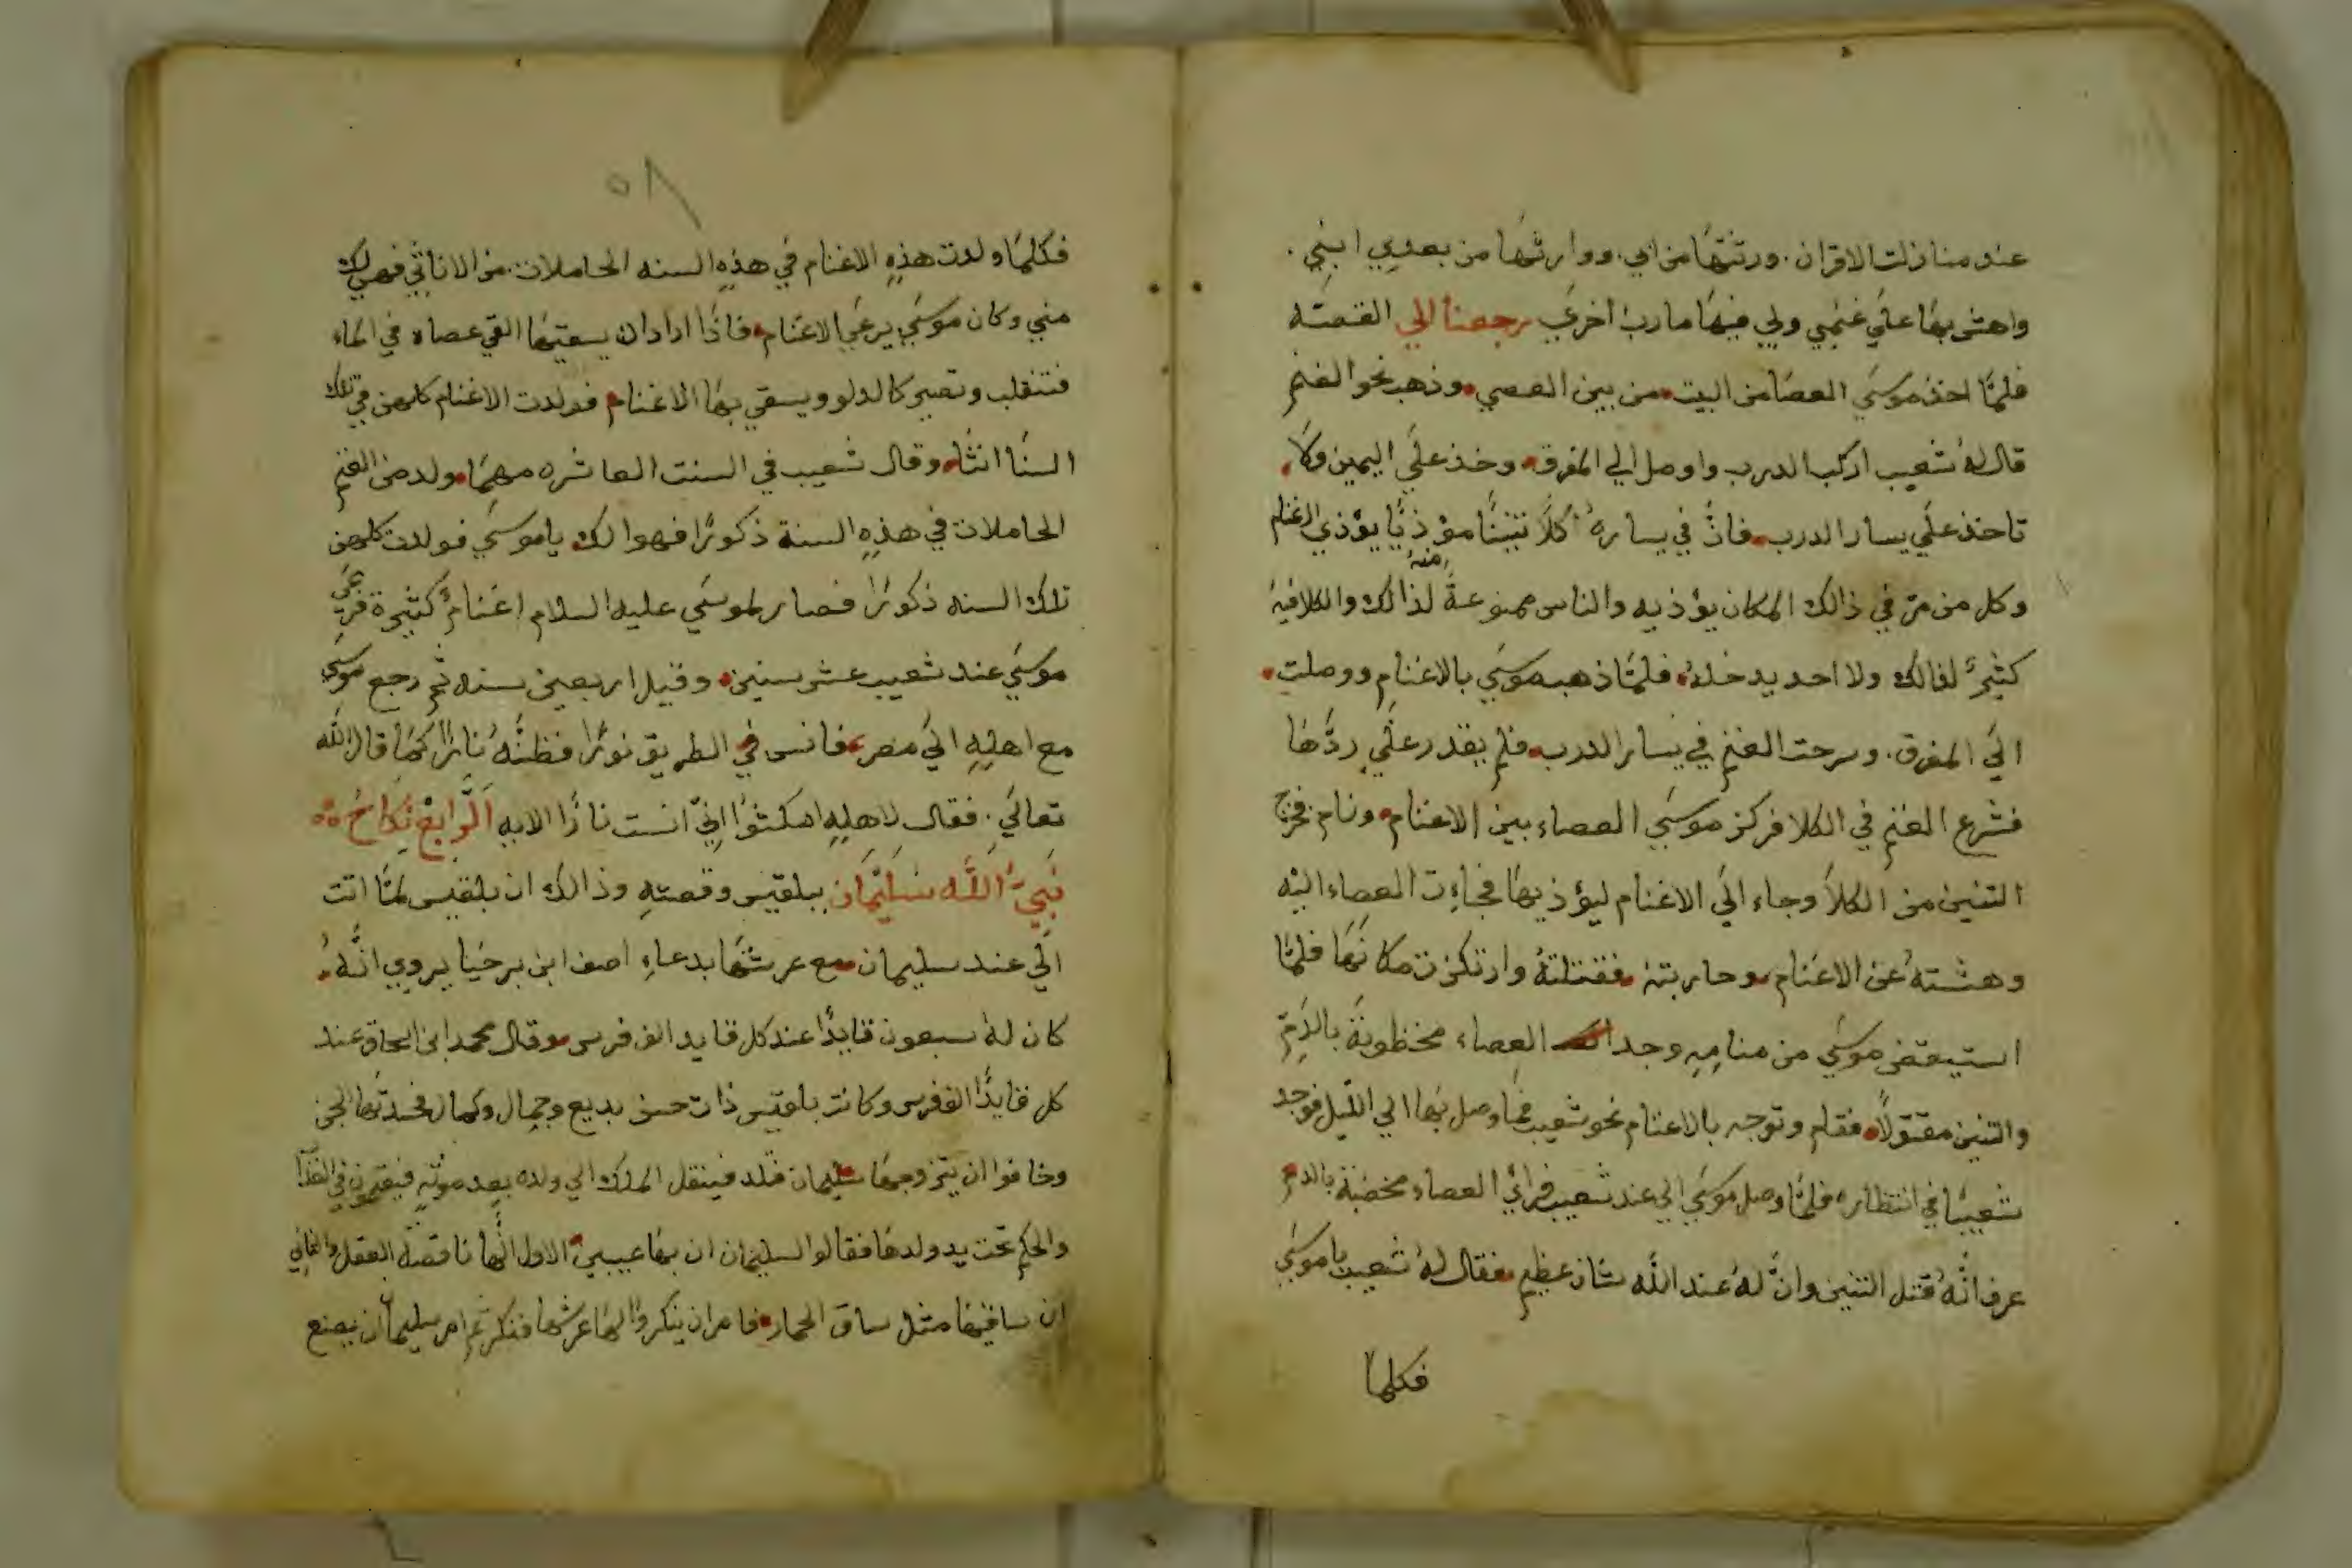 عند منازلت الاقران. ورثتها من ابي. ووارثها من بعدي ابني.
واهش بها علي غنمي ولي فيها مارب اخري رجعنا الي القصته
فلما اخذ موسي العصا من البيت من بين العصي وذهب نحو الغنم
قال له شعيب اركب الدرب واوصل الي المفرق وخذ علي اليمين ولا
تاخذ علي يسار الدرب فان في يساره كلاً تنينًا مؤذيًا يؤذي الاغنام
وكل من مر في ذالك المكان يؤذيه والناس ممنوعة منه لذالك والكلا فيه
كثير لذالك ولا احد يدخله فلما ذهب موسي بالاغنام ووصلت
الي المفرق. وسرحت الغنم في يسار الدرب فلم يقدر علي ردها
فشرع الغنم في الكلا فركز موسي العصاء بين الاغنام ونام فخرج
التنين من الكلا وجاء الي الاغنام ليؤذيها فجاءت العصاء اليه
وهشته عن الاغنام وحاربته فقتلته وارتكزت مكانها فلما
استيقض موسي من منامه وجد العصاء مخظوبة بالدم
والتنين مقتولاً فقام وتوجه بالاغنام نحو شعيب فما وصل بها الي الليل فوجد
شعيبًا في انتظاره فلما وصل موسي الي عند شعيب فراي العصاء مخضبة بالدم
عرف انه قتل التنين وان له عند الله شان عظيم فقال له شعيب يا موسي
فكلما
٥٨
فكلما ولدت هذه الاغنام في هذه السنه الحاملات من الاناثي فهي لك
مني وكان موسي يرعي الاغنام فاذا اراد ان يسقيها القي عصاه في الماء
فتنقلب وتصير كالدلو ويسقي بها الاغنام فولدت الاغنام كلهن في تلك
السنا انثا وقال شعيب في السنت العاشره مهما ولد من الغنم
الحاملات في هذه السنة ذكورًا فهوا لك يا موسي فولدت كلهن
تلك السنه ذكورًا فصار لموسي عليه السلام اغنام كثيرة فرعي
موسي عند شعيب عشر سنين وقيل اربعين سنه ثم رجع موسي
مع اهله الي مصر فانس في الطريق نورًا فظنه نارًا كما قال الله
تعالي. فقال لاهله امكثوا اني انست نارًا الايه الرابع نكاح
نبي الله سليمان ببلقيس وقصته وذالك ان بلقيس لما اتت
الي عند سليمان مع عرشها بدعاء اصف ابن برخيا يروي انه
كان له سبعون قايدًا عند كل قايد الف فرس وقال محمد ابن اسحاق عند
كل قايدًا الف فرس وكانت بلقيس ذات حسن بديع وجمال وكمال فحسدتها الجن
وخافوا ان يتزوجها سليمان فتلد فينتقل الملك الي ولده بعد موته فيبقون في
والحكم تحت يد ولدها فقالوا لسليمان ان بها عيبين الاول انها ناقصة العقل والثاني
ان ساقيها مثل ساق الحمار فامر ان ينكروا لها عرشها فنكر ثم امر سليمان ان يصنع